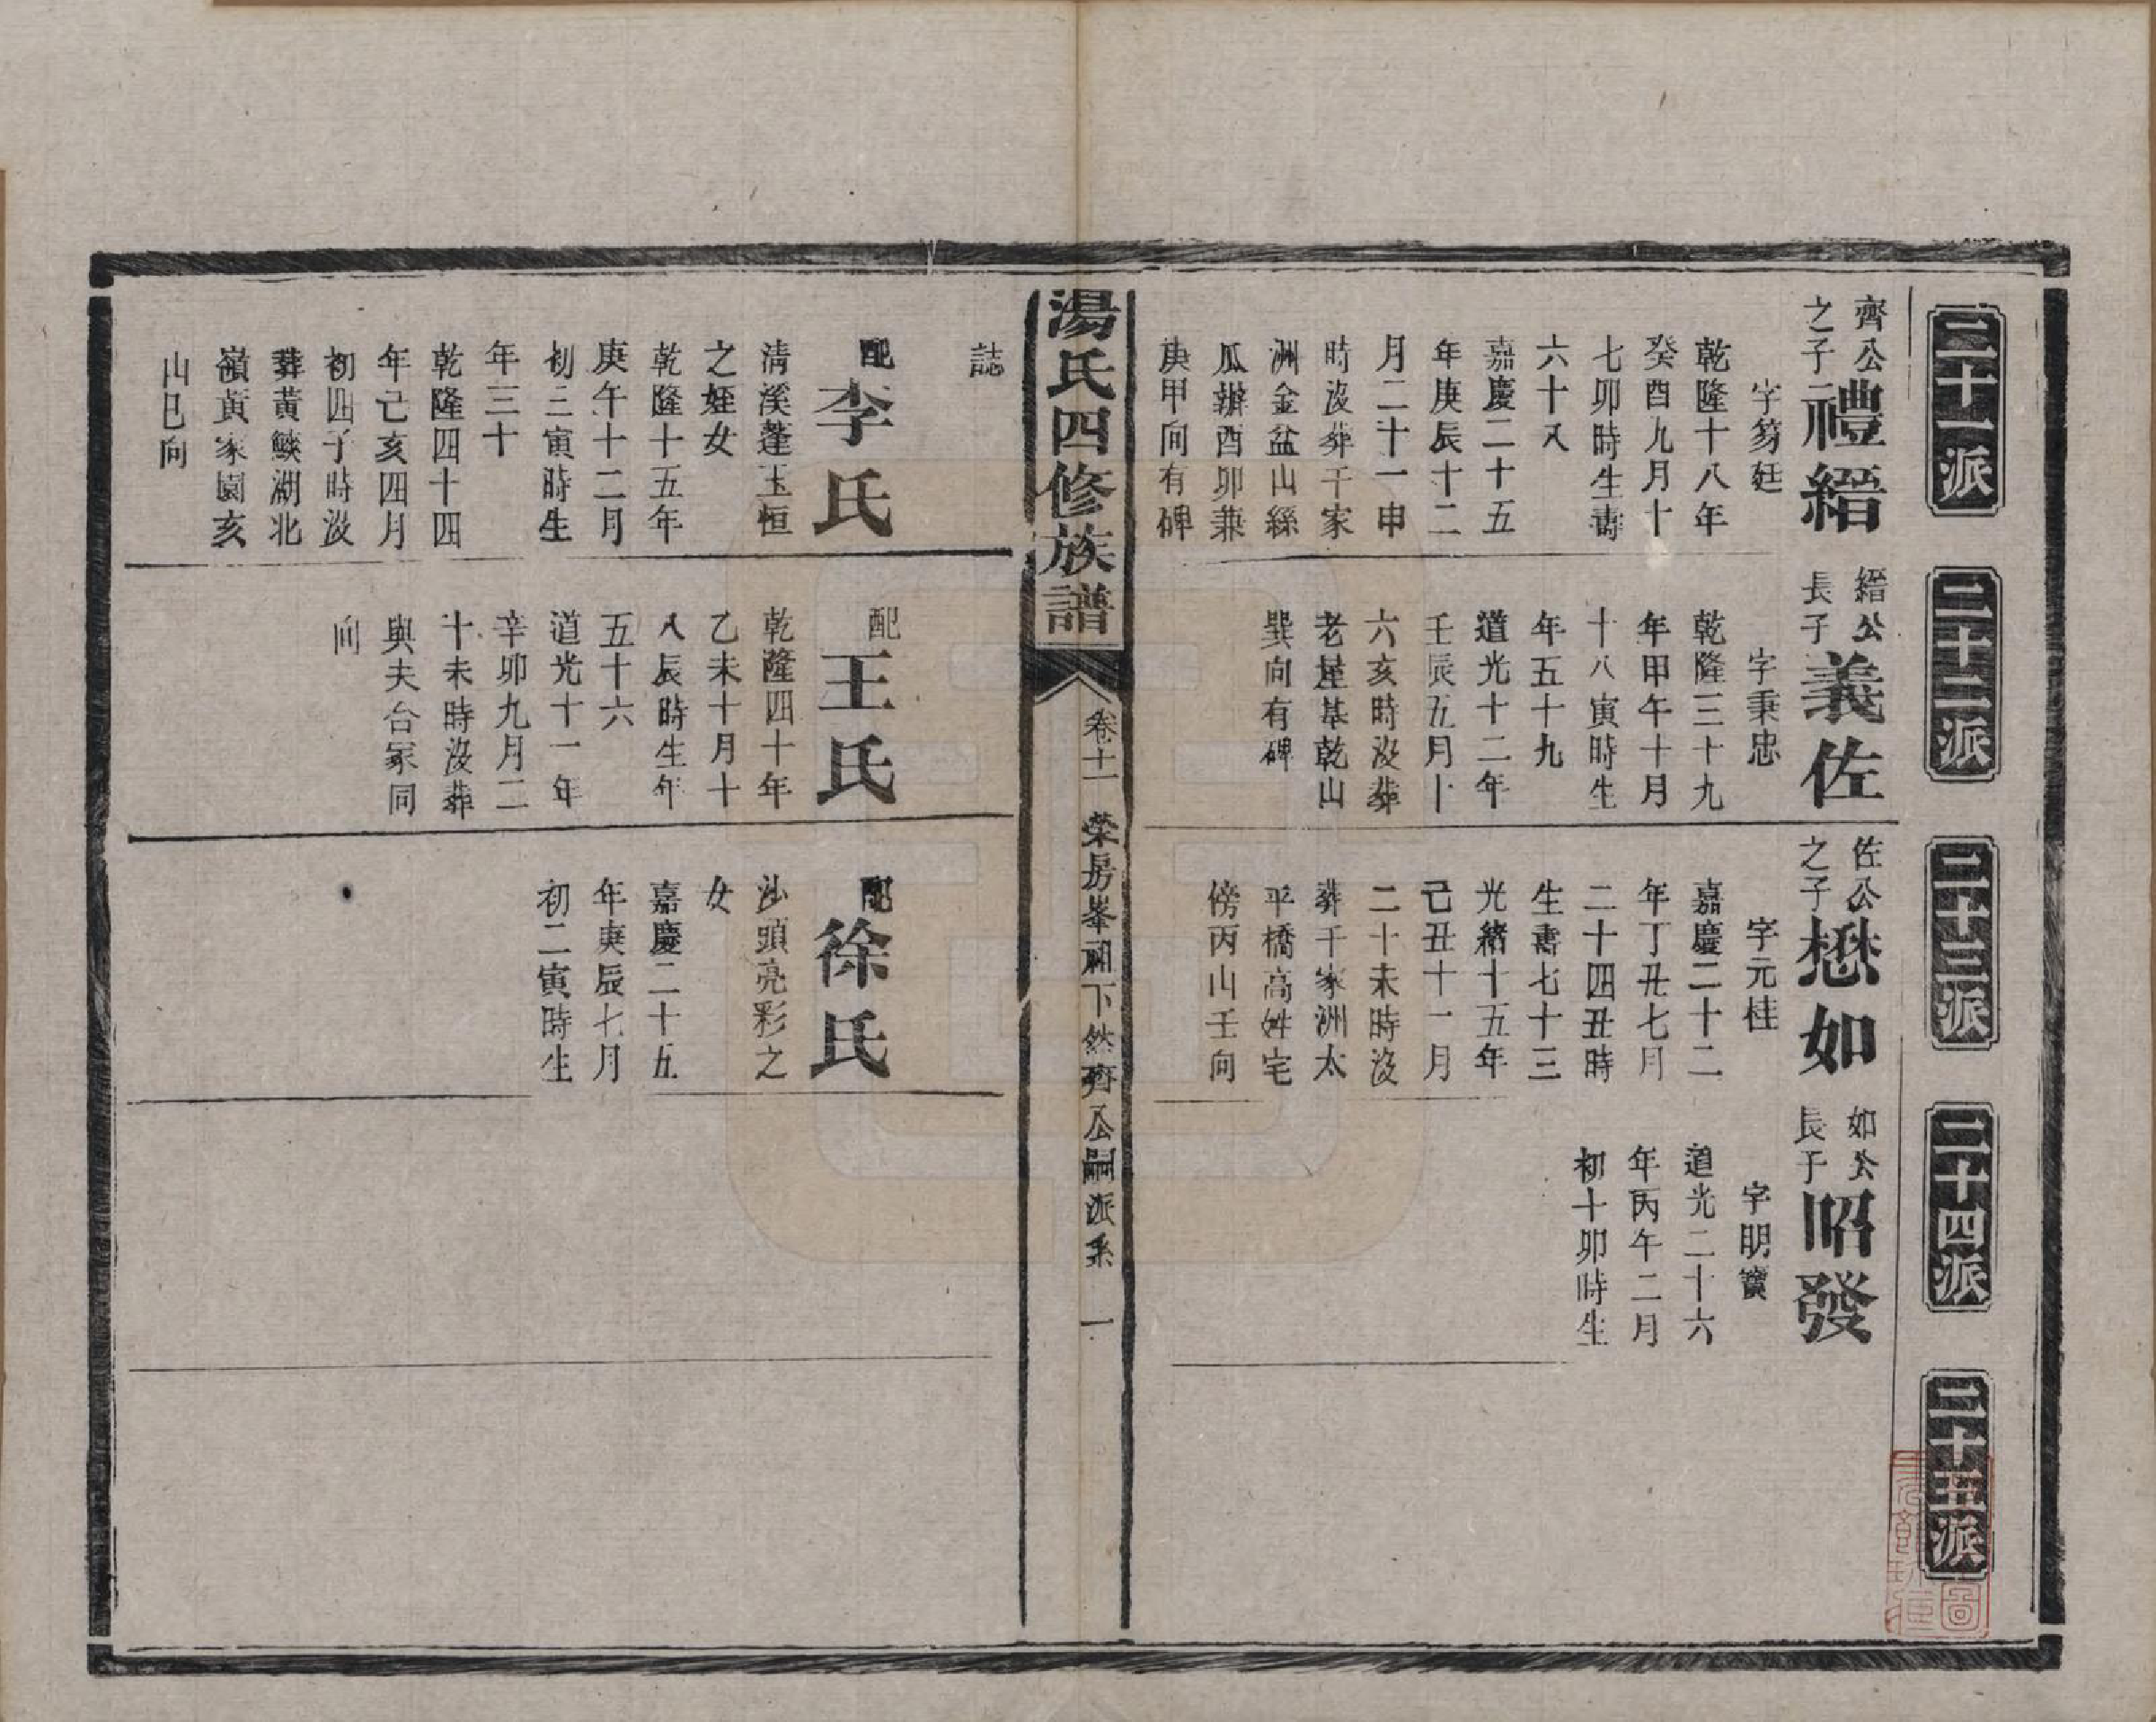 二十一派
二十二派
二十三派
二十四派
二十五派
齊公
之子
禮縉
字笏廷
乾隆十八年
癸酉九月十
七卯時生壽
六十八
嘉慶二十五
年庚辰十二
月二十一申
時沒葬千家
洲金盆山絲
瓜辦酉卯兼
庚甲向有碑
縉公
長子
義佐
字秉忠
乾隆三十九
年甲午十月
十八寅時生
年五十九
道光十二年
壬辰五月十
六亥時沒葬
老屋基乾山
巽向有碑
佐公
之子
懋如
字元桂
嘉慶二十二
年丁丑七月
二十四丑時
生壽七十三
光緒十五年
己丑十一月
二十未時沒
葬千家洲太
平橋高姓宅
傍丙山壬向
如公
長子
昭發
字明寶
道光二十六
年丙午二月
初十卯時生
湯氏四修族譜
卷十一
榮房峯祖下然齊公嗣派系
一
誌
配
李氏
清溪蓬玉恒
之姪女
乾隆十五年
庚午十二月
初三寅時生
年三十
乾隆四十四
年己亥四月
初四子時沒
葬黃鱗湖北
嶺黃家園亥
山巳向
配
王氏
乾隆四十年
乙未十月十
八辰時生年
五十六
道光十一年
辛卯九月二
十未時沒葬
與夫合冢同
向
配
徐氏
沙頭亮彩之
女
嘉慶二十五
年庚辰七月
初二寅時生